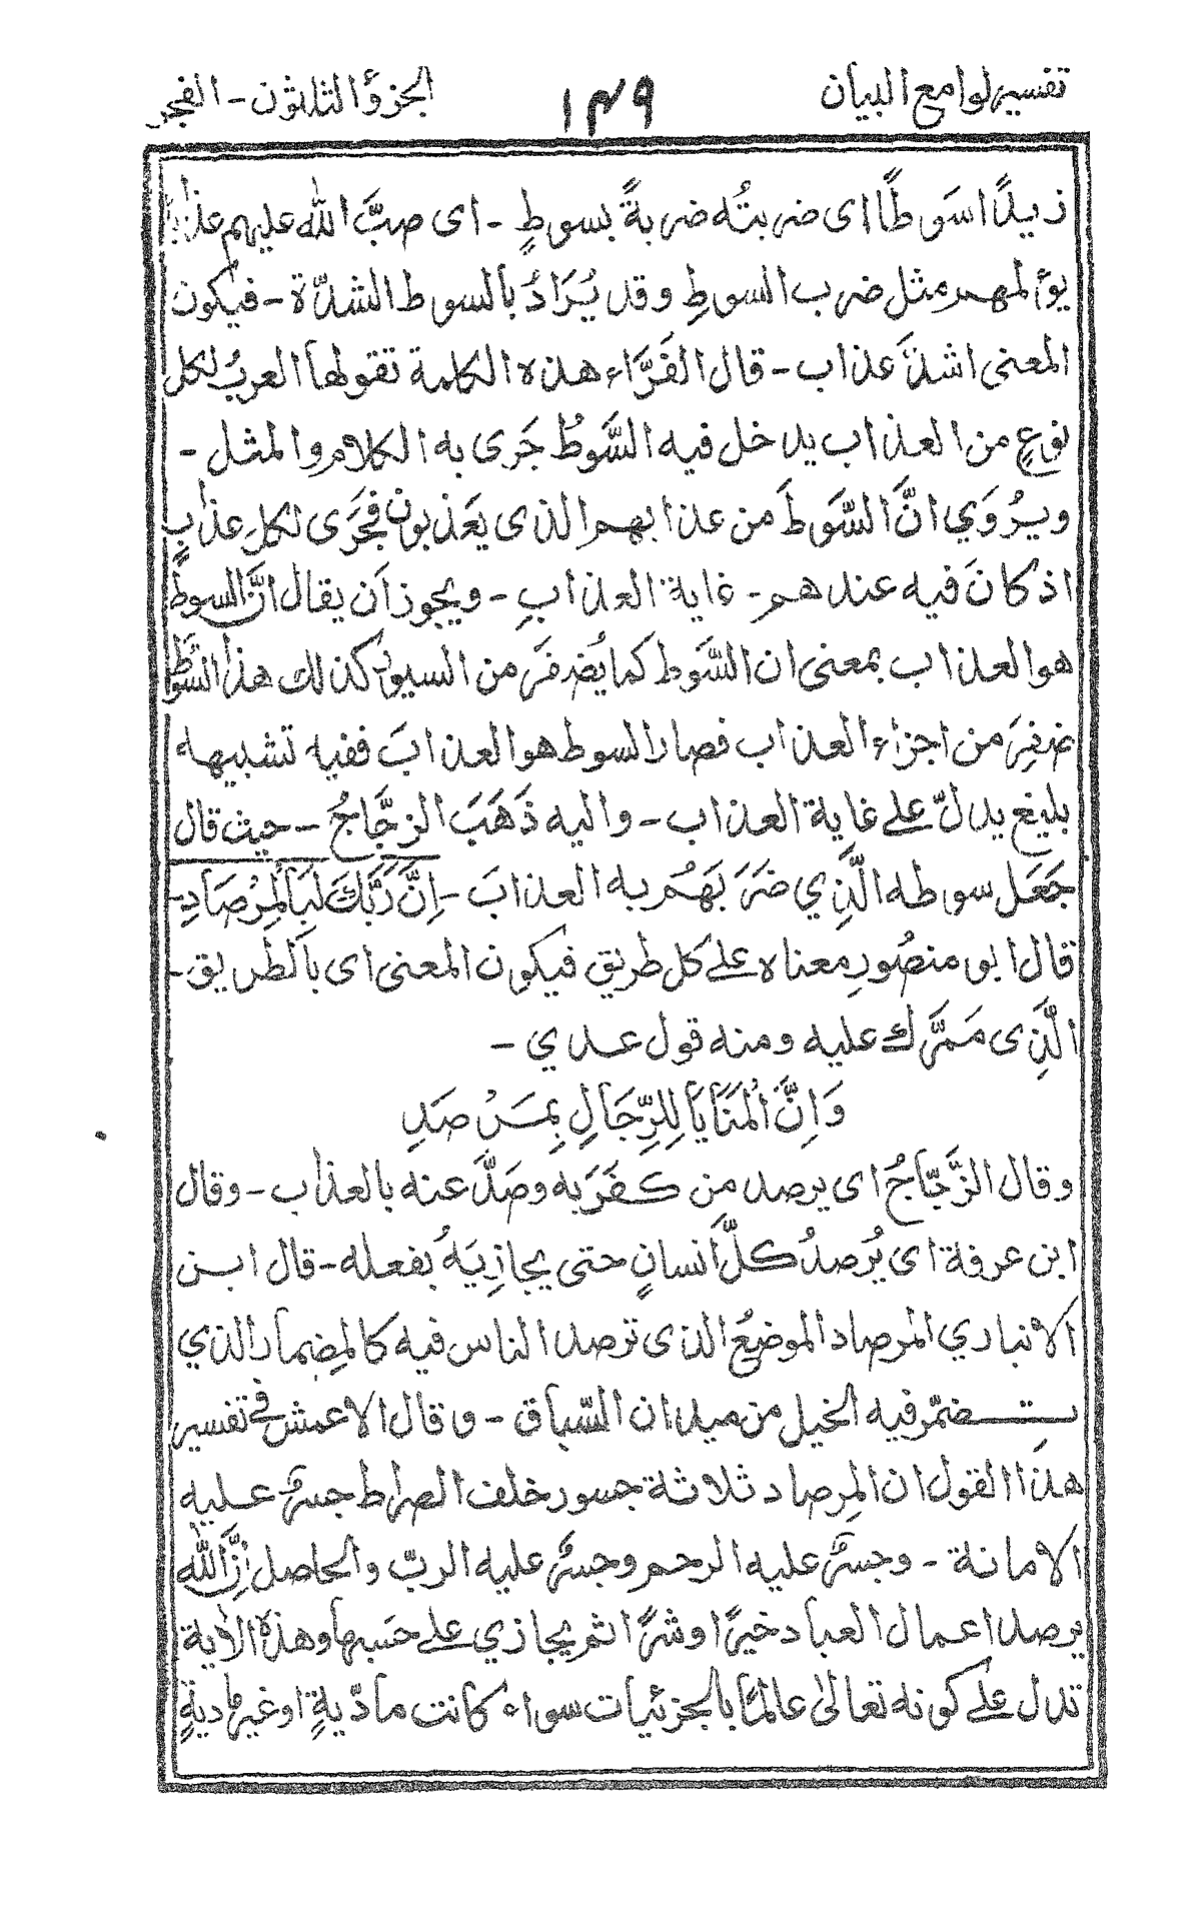 تفسير لوامع البيان ١٤٩ الجزؤ الثلاثون - الفجر
زيدًا سَوطًا اى ضربتُه ضربةً بسوطٍ - اى صبَّ الله عليهم عذابًا
يؤلمهم مثل ضرب السوطِ وقد يُرَادُ بالسوط الشدّة - فيكون
المعنى اشدَّ عذاب - قال الفَرَّاء هذه الكلمة تقولها العربُ لكل
نوعٍ من العذاب يدخل فيه السَّوطُ جَرى به الكلام والمثل -
ويُروَي انَّ السَّوطَ من عذابهم الذى يعَذبون فجَرَى لكلِ عذابٍ
اذ كانَ فيه عندهم - غاية العذابِ - ويجوز اَن يقال انَّ السوطَ
هو العذاب بمعنى ان السَّوط كما يُضفَر من السيور كذلك هذا السَّوطُ
ضفِرَ من اجزاء العذاب فصار السوط هو العذابَ ففيه تشبيه
بليغ يدلّ على غاية العذاب - واليه ذَهَبَ الزجَّاجُ - حيث قال
جَعَل سوطه الَّذِي ضَرَبَهُم به العذابَ - اِنَّ رَبَّكَ لَبِالْمِرْصَادِ -
قال ابو منصُورِ معناه على كل طريق فيكون المعنى اى بالطريق -
الَّذِى مَمَرّك عليه ومنه قول عدي -
وَاِنَّ الْمَنَايَا لِلرِّجَالِ بِمَرْصَدِ
وقال الزَّجّاجُ اى يرصد من كفَرَ به وصَدَّ عنه بالعذاب - وقال
ابن عرفة اى يُرصدُ كلَّ انسانٍ حتى يجازِيَهُ بفعله - قال ابن
الانباري المرصاد الموضِعُ الذى ترصد الناس فيه كالمِضمار الذي
تضمّر فيه الخيل من ميدان السّباق - وقال الاعمش فى تفسير
هذا القول ان المِرصاد ثلاثة جسور خلف الصراط جسرٌ عليه
الامانة - وجسرٌ عليه الرحم وجسرٌ عليه الربّ والحاصل اِنَّ الله
يرصد اعمال العباد خيرًا وشرًّا ثم يجازي على حَسَبها وهذه الاٰية
تدل على كونه تعالىٰ عالمًا بالجزئيات سواء كانت مادّيةٍ او غير مادية